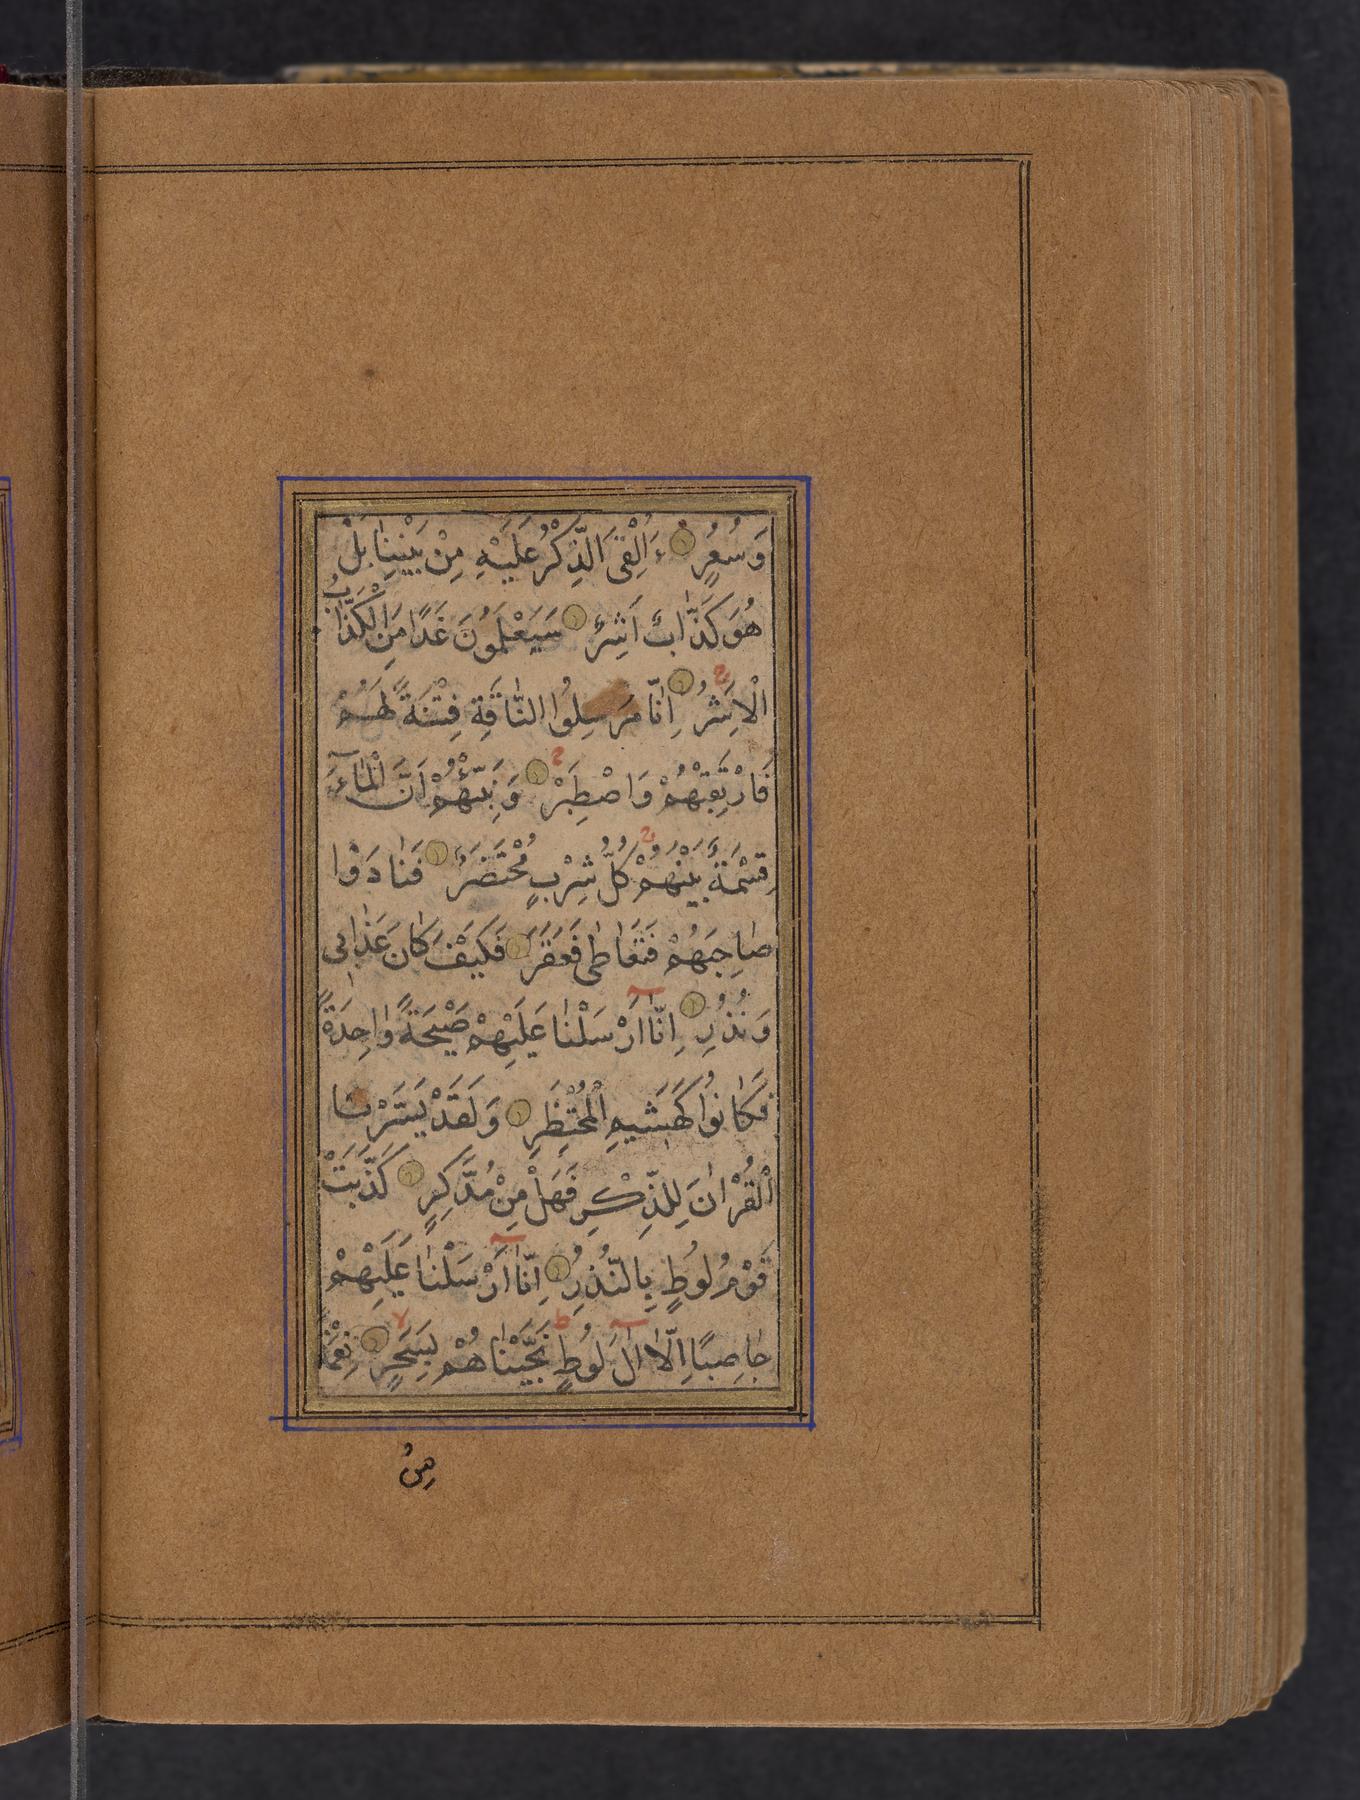 وَسُعُرٍ ءَاُلْقِیَ الذِّكْرُ عَلَيْهِ مِنْ بَيْنِنَا بَلْ
هُوَ كَذَّابٌ اَشِرٌ سَيَعْلَمُونَ غَدًا مَنِ الْكَذَّابُ
الْاَشِرُ اِنَّا مُرْسِلُوا النَّاقَةِ فِتْنَةً لَهُمْ
فَارْتَقِبْهُمْ وَاصْطَبِرْ وَنَبِّئْهُمْ اَنَّ الْمَاءَ
قِسْمَةٌ بَيْنَهُمْ كُلُّ شِرْبٍ مُحْتَضَرٌ فَنَادَوْا
صَاحِبَهُمْ فَتَعَاطٰى فَعَقَرَ فَكَيْفَ كَانَ عَذَابِی
وَنُذُرِ اِنَّا اَرْسَلْنَا عَلَيْهِمْ صَيْحَةً وَاحِدَةً
فَكَانُوا كَهَشِيمِ الْمُحْتَظِرِ وَلَقَدْ يَسَّرْنَا
الْقُرْاٰنَ لِلذِّكْرِ فَهَلْ مِنْ مُدَّكِرٍ كَذَّبَتْ
قَوْمُ لُوطٍ بِالنُّذُرِ اِنَّا اَرْسَلْنَا عَلَيْهِمْ
حَاصِبًا اِلَّا اٰلَ لُوطٍ نَجَّيْنَاهُمْ بِسَحَرٍ نِعْمَةً
مِنْ